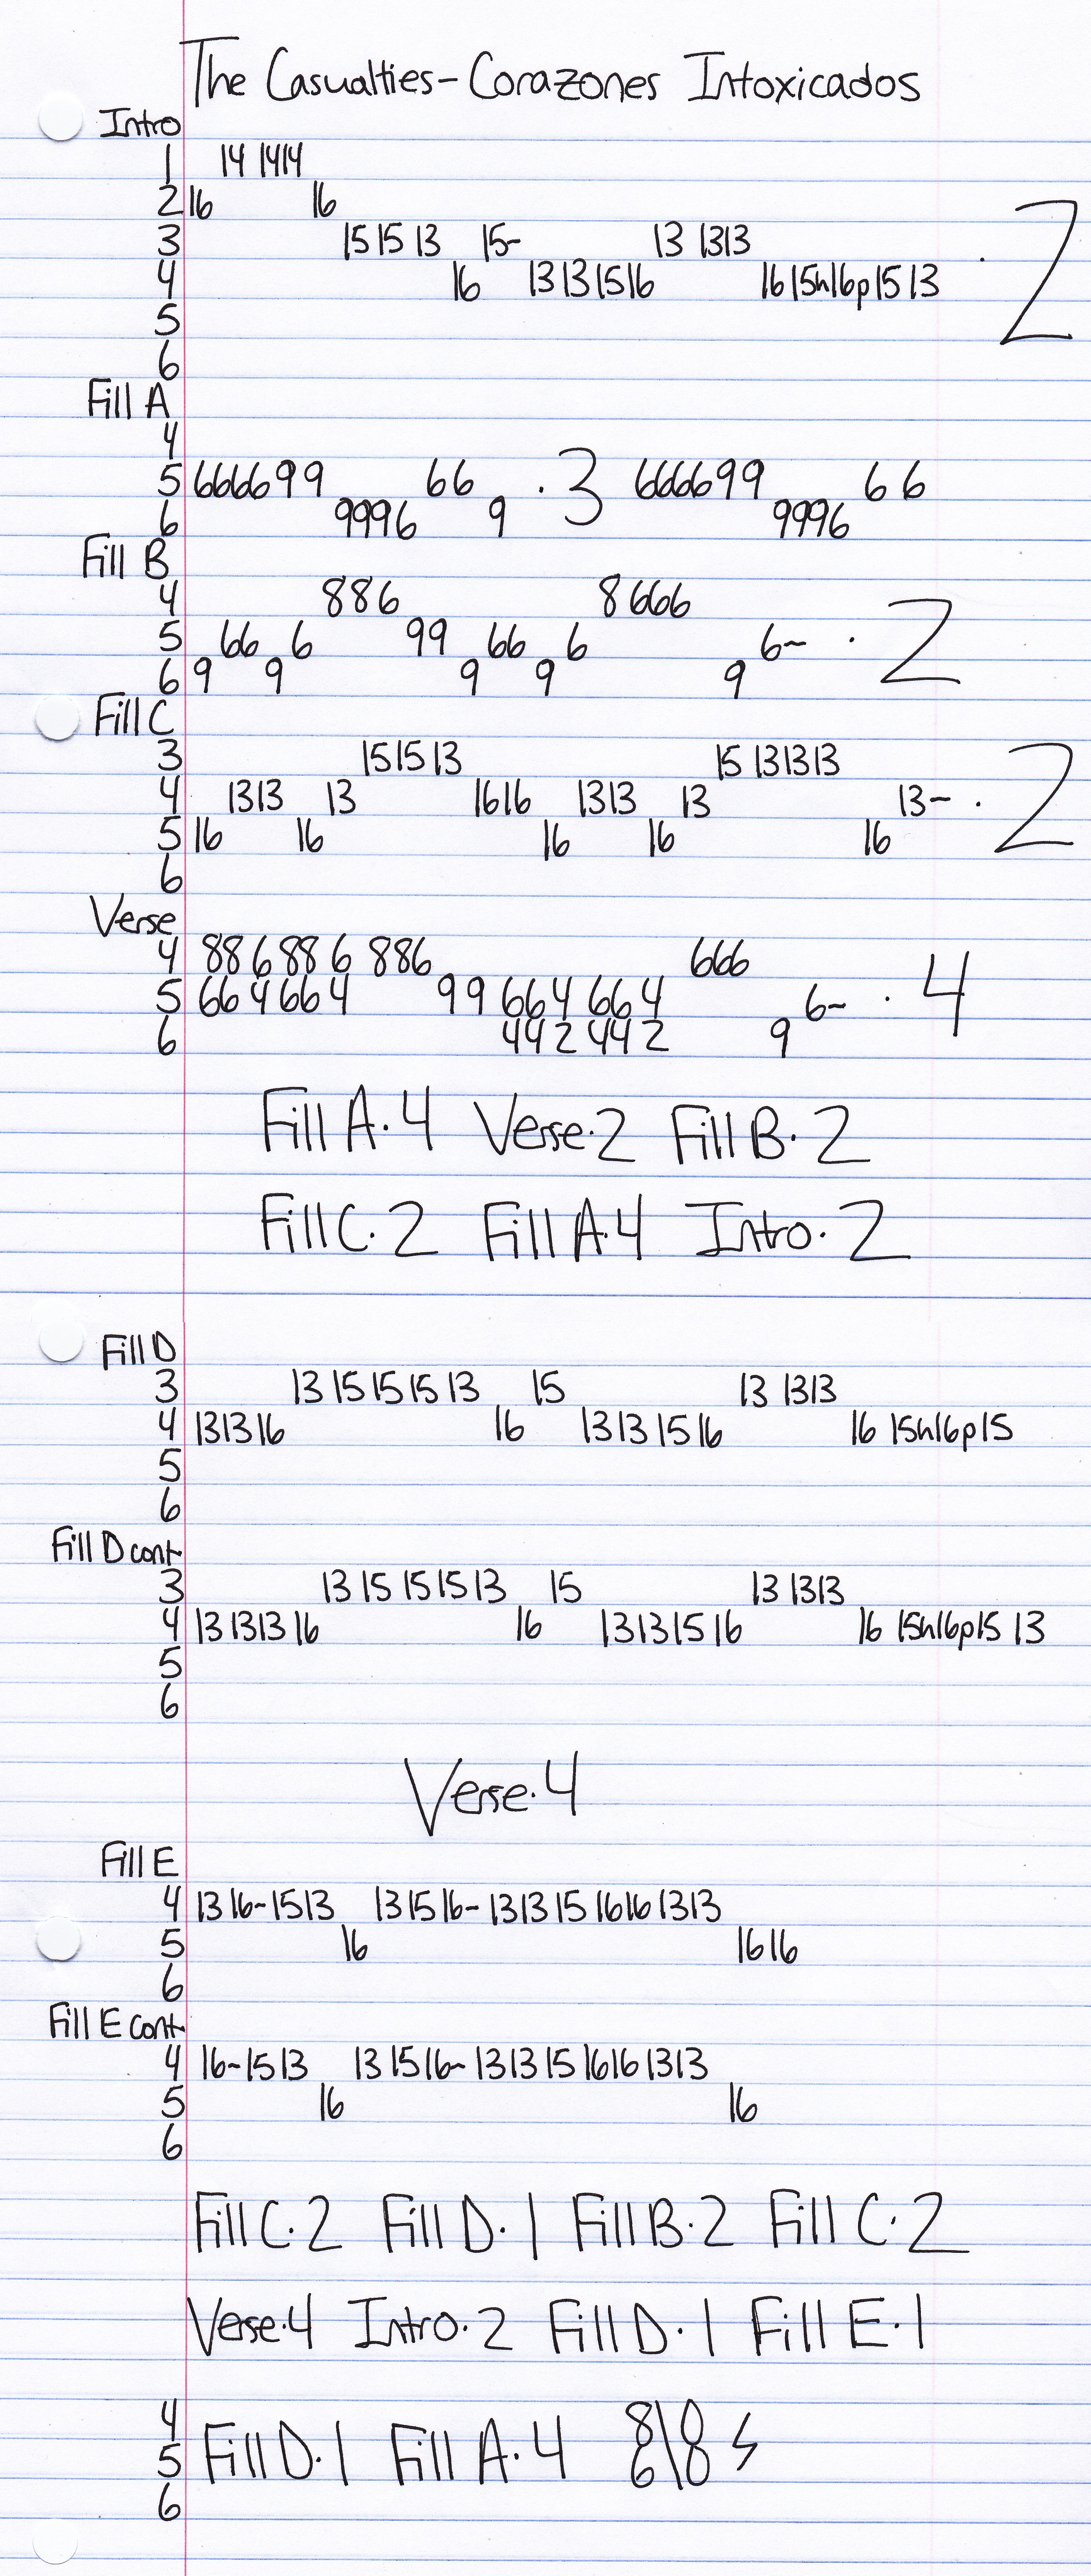 The Casualties - Corazones Intoxicados
Intro
1 14 1414
2 16 16
3 15 15 13 15~ 13 1313
4 16 13 13 15 16 16 15h16p15 13 · 2
5
6
Fill A
4
5 6666 99 66 · 3 6666 99 66
6 9996 9 9996
Fill B
4 886 8 666
5 66 6 99 66 6 6~ · 2
6 9 9 9 9 9
Fill C
3 15 15 13 15 13 13 13
4 13 13 13 16 16 13 13 13 13~ · 2
5 16 16 16 16 16
6
Verse
4 88 6 88 6 886 666
5 66 4 66 4 99 66 4 66 4 6~ · 4
6 44 2 44 2 9
Fill A · 4 Verse · 2 Fill B · 2
Fill C · 2 Fill A · 4 Intro · 2
Fill D
3 13 15 15 15 13 15 13 1313
4 13 13 16 16 13 13 15 16 16 15h16p15
5
6
Fill D cont
3 13 15 15 15 13 15 13 1313
4 13 13 13 16 16 13 13 15 16 16 15h16p15 13
5
6
Verse · 4
Fill E
4 13 16~ 15 13 13 15 16~ 13 13 15 16 16 13 13
5 16 16 16
6
Fill E cont
4 16~ 15 13 13 15 16~ 13 13 15 16 16 13 13
5 16 16
6
Fill C · 2 Fill D · 1 Fill B · 2 Fill C · 2
Verse · 4 Intro · 2 Fill D · 1 Fill E · 1
4 8\8
5 Fill D · 1 Fill A · 4 6\8
6